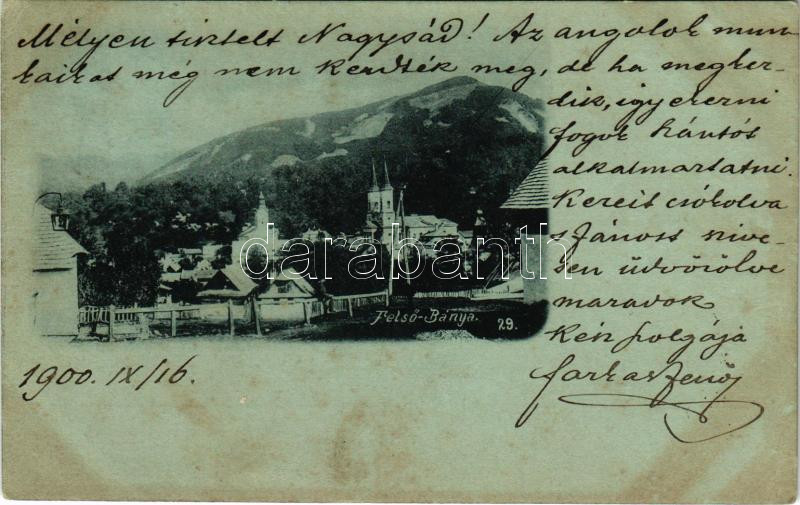 Mélyen tisztelt Nagysád! Az angolok mun-
káikat még nem kezdték meg, de ha megkez-
dik, igyekezni
fogok Hántós
alkalmaztatni.
Kezeit csókolva
s Jánost szive-
sen üdvözölve
maradok
Kész szolgája
Farkas Jenő
1900. IX/16.
Felső-Bánya.
29.
darabanth